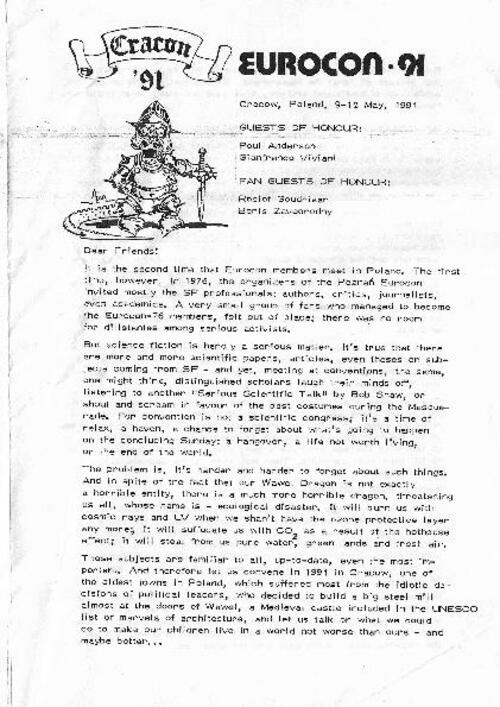 Cracon '91
EUROCON·91
Cracow, Poland, 9-12 May, 1991
GUESTS OF HONOUR:
Poul Anderson
Gianfranco Viviani
FAN GUESTS OF HONOUR:
Roelof Goudriaan
Boris Zavgorodny
Dear Friends!
It is the second time that Eurocon members meet in Poland. The first
time, however, in 1976, the organizers of the Poznań Eurocon
invited mostly the SF professionals: authors, critics, journalists,
even academics. A very small group of fans who managed to become
the Eurocon-76 members, felt out of place; there was no room
for diletantes among serious activists.
But science fiction is hardly a serious matter. It's true that there
are more and more scientific papers, articles, even theses on sub-
jects coming from SF - and yet, meeting at conventions, the same,
one might think, distinguished scholars laugh their minds off,
listening to another "Serious Scientific Talk" by Bob Shaw, or
shout and scream in favour of the best costumes during the Masque-
rade. For convention is not a scientific congress; it's a time of
relax, a haven, a chance to forget about what's going to happen
on the concluding Sunday: a hangover, a life not worth living,
or the end of the world.
The problem is, it's harder and harder to forget about such things.
And in spite of the fact that our Wawel Dragon is not exactly
a horrible entity, there is a much more horrible dragon, threatening
us all, whose name is - ecological disaster. It will burn us with
cosmic rays and UV when we shan't have the ozone protective layer
any more; it will suffocate us with CO2 as a result of the hothouse
effect; it will steal from us pure water, green lands and fresh air.
Those subjects are familiar to all, up-to-date, even the most im-
portant. And therefore let us convene in 1991 in Cracow, one of
the oldest towns in Poland, which suffered most from the idiotic de-
cisions of political leaders, who decided to build a big steel mill
almost at the doors of Wawel, a Medieval castle included in the UNESCO
list of marvels of architecture, and let us talk on what we could
do to make our children live in a world not worse than ours - and
maybe better...